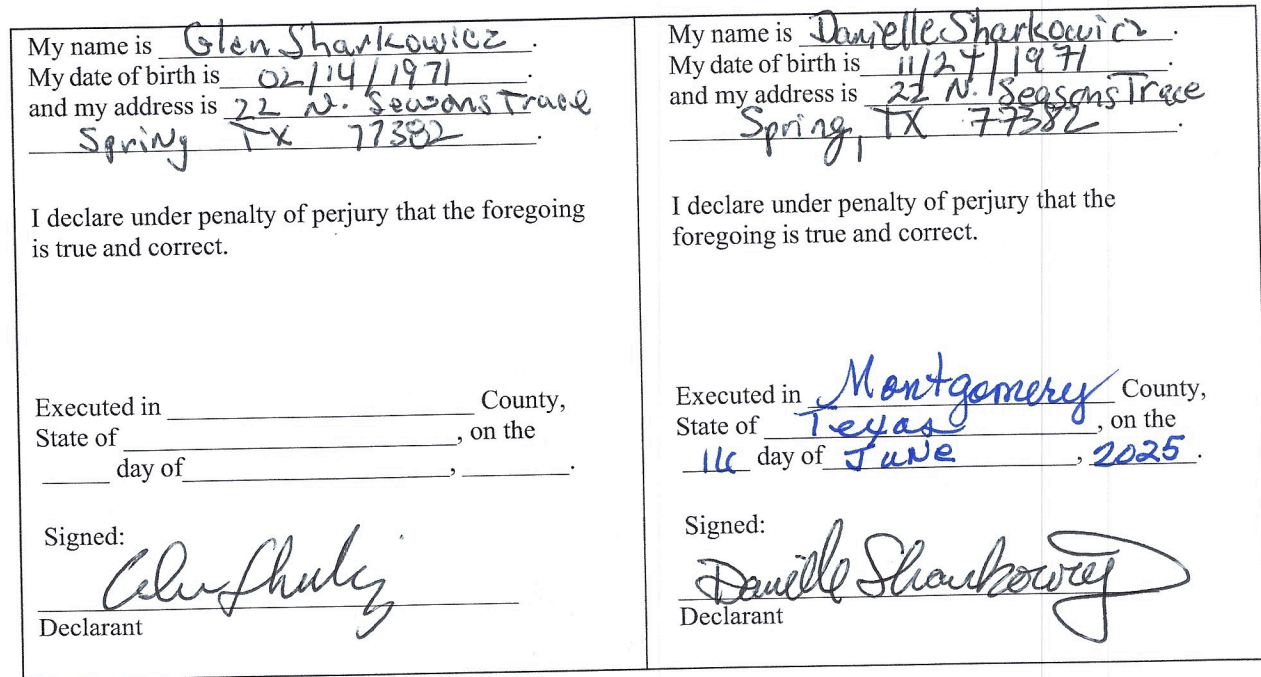 My name is Glen Sharkowicz.
My date of birth is 02/14/1971.
and my address is 22 N. Seasons Trace
Spring TX 77382.
I declare under penalty of perjury that the foregoing
is true and correct.
Executed in ____________ County,
State of ____________, on the
_____ day of ____________, ________.
Signed:
Declarant
My name is Danielle Sharkowicz.
My date of birth is 11/27/1971.
and my address is 22 N. Seasons Trace
Spring, TX 77382.
I declare under penalty of perjury that the
foregoing is true and correct.
Executed in Montgomery County,
State of Texas, on the
day of June, 2025.
Signed:
Danielle Sharkowicz
Declarant